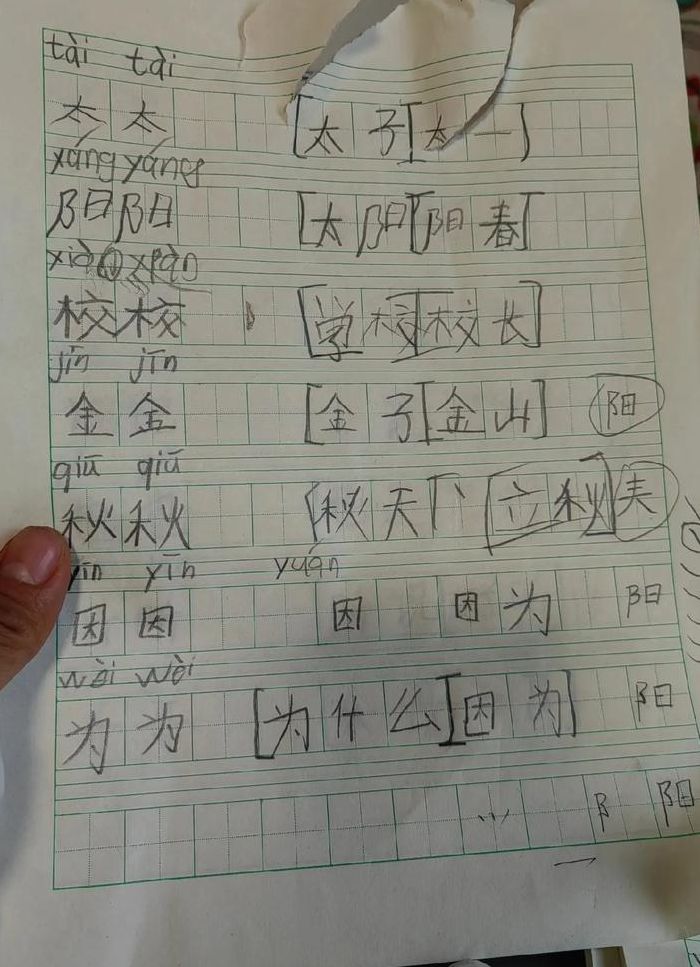 tài tài
太 太 [太子][太一]
xáng yáng
阳 阳 [太阳][阳春]
xiào xiàn
校 校 [学校][校长]
jīn jīn
金 金 [金子][金山] 阳
qiū qiū
秋 秋 [秋天] [立秋] 美
yīn yīn yuán
因 因 因 因为 阳
wèi wèi
为 为 [为什么][因为] 阳
阝 阳